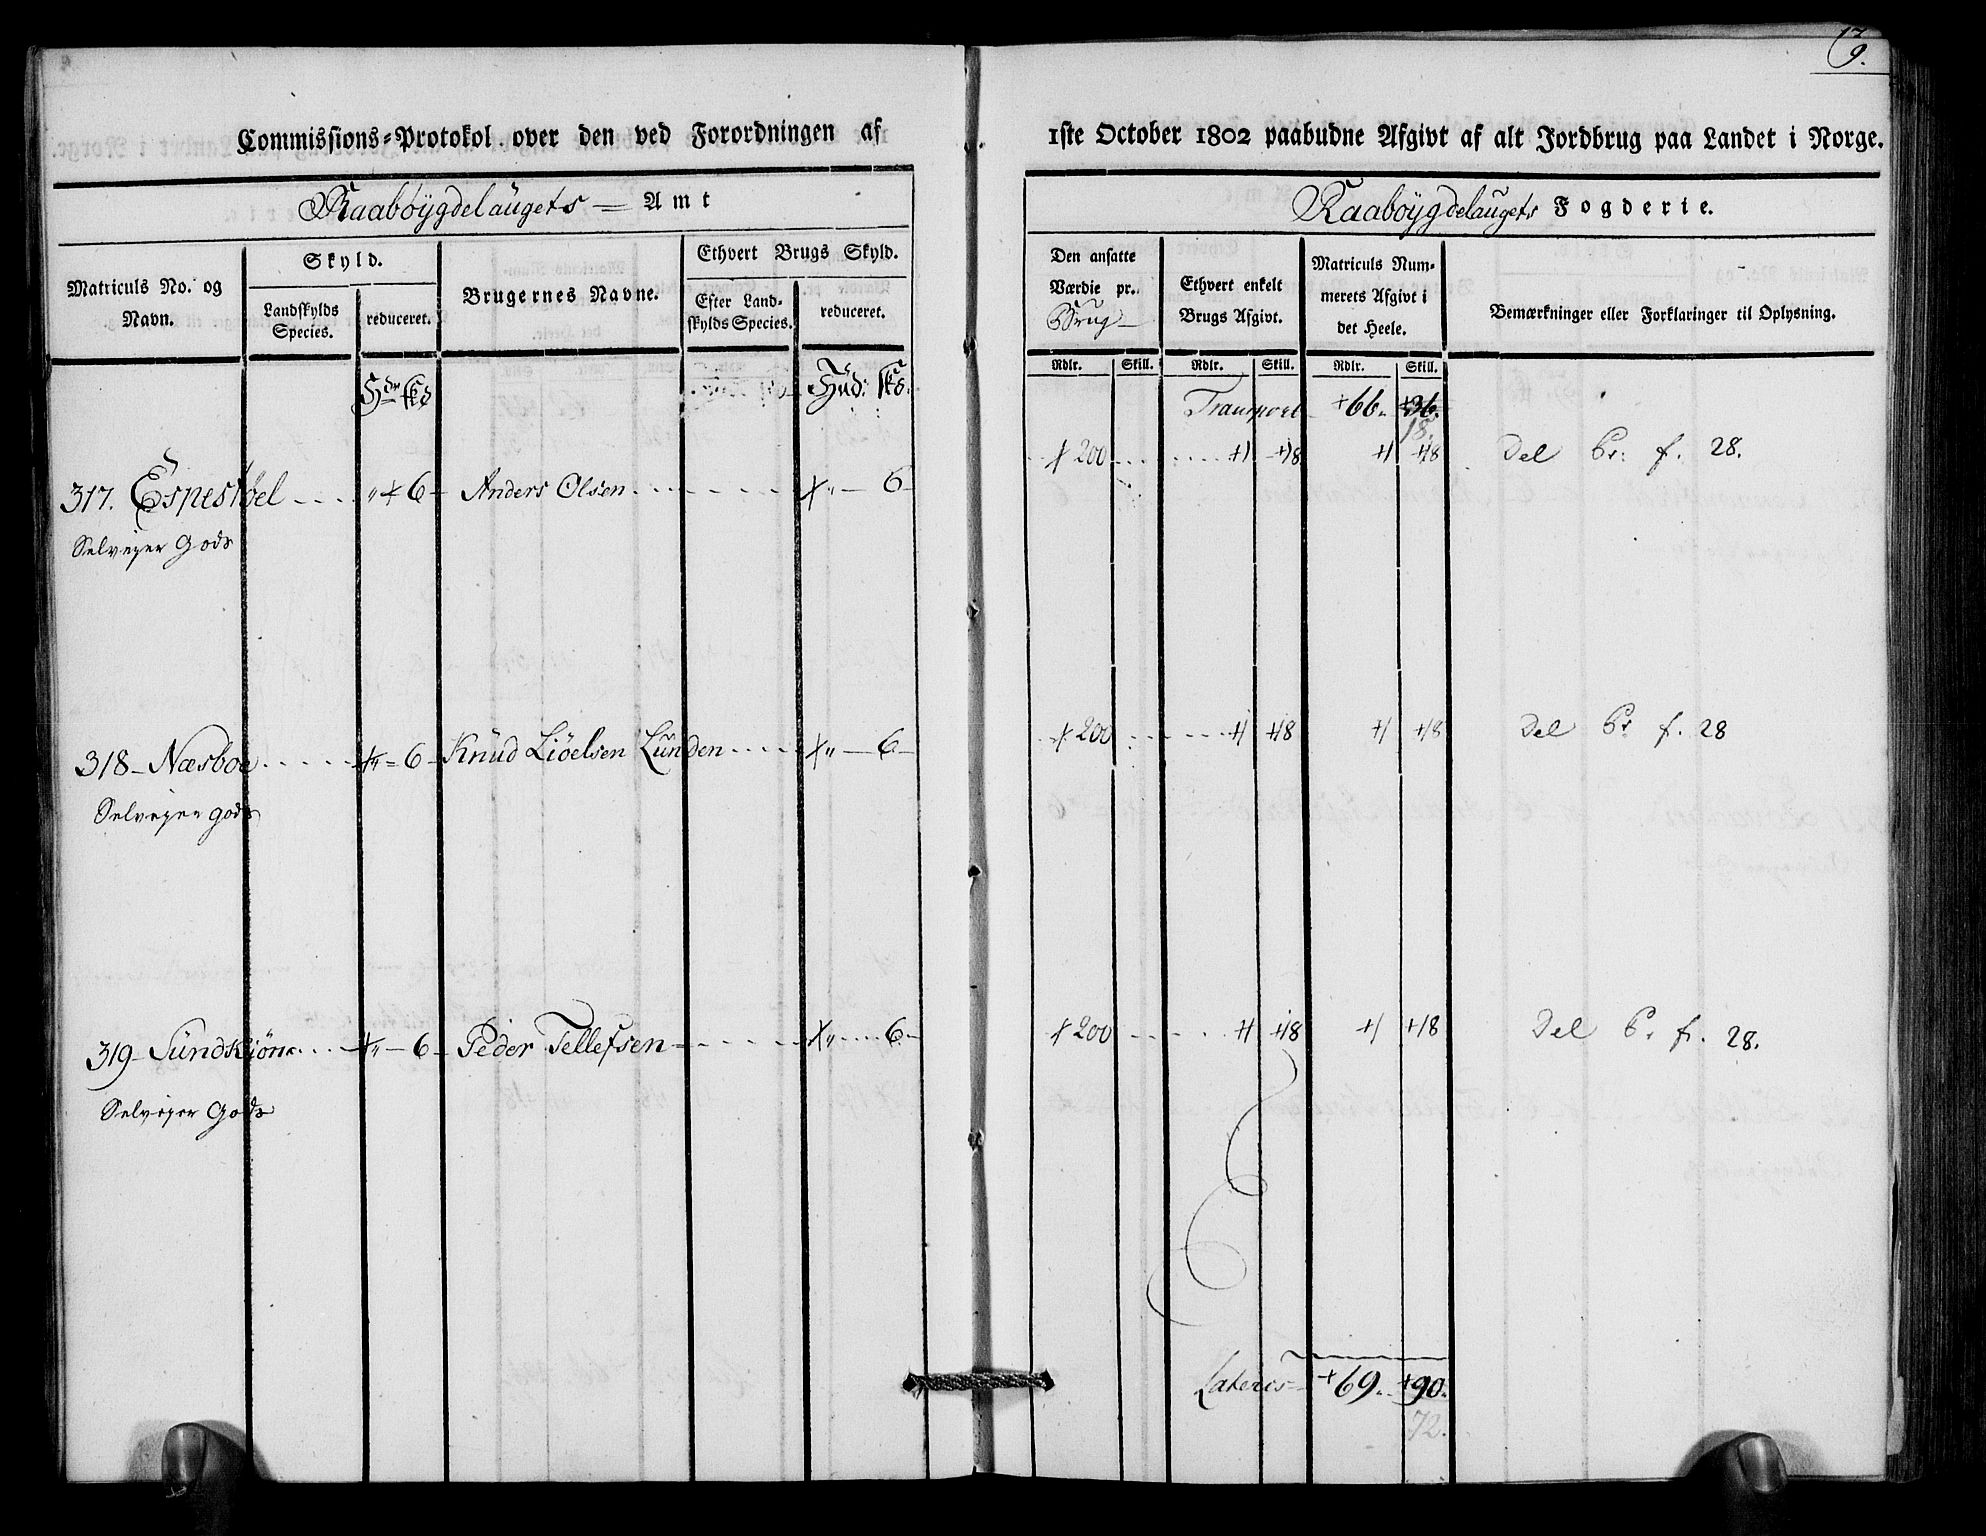 Commissions=Protokol over den ved Forordningen af
Raabøygdelaugets Amt
Matriculs No. og Navn.
Skyld.
Landskylds Species.
reduceret.
Brugernes Navne.
Ethvert Brugs Skyld.
Efter Landskylds Species.
reduceret.
Hud:
317. Espestøel " 6 Anders Olsen " 6
Selveyer Gods
318 Næsboe " 6 Knud Liøelsen Lunden " 6
Selveyer gods
319 Sundkiøn " 6 Peder Tellefsen " 6
Selveyer Gods
9.
1ste October 1802 paabudne Afgivt af alt Jordbrug paa Landet i Norge.
Raabøygdelaugets Fogderie.
Den ansatte Værdie pr. Brug
Ethvert enkelt Brugs Afgivt.
Matriculs Nummerets Afgivt i det Heele.
Bemærkninger eller Forklaringer til Oplysning.
Rdlr. Skill. Rdlr. Skill. Rdlr. Skill.
Transport 66. 36.
18.
200 1 18 1 18 Del Pr: f. 28.
200 1 18 1 18 Del Pr f. 28
200 1 18 1 18 Del Pr f. 28.
Lateris 69. 90.
72.